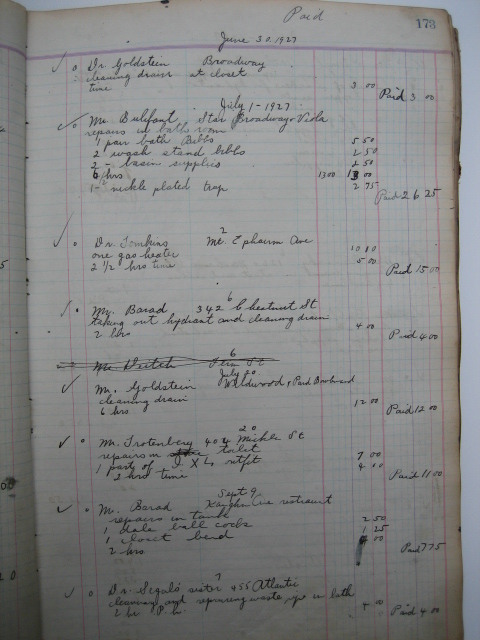 Paid 173
June 30, 1927
Dr Goldstein Broadway
cleaning drain at closet
time 3 00
Paid 3 00
July 1 - 1927
Mr. Bulifant Star Broadway & Viola
repairs in bath room
1 pair bath Bibbs 5 50
2 wash stand bibbs 2 50
2 - basin supplies 2 50
6 hrs 1300 13 00
1 - nickle plated trap 2 75
Paid 26 25
2
Dr. Tomkins Mt. Epharim Ave
one gas heater 10 00
2 1/2 hrs time 5 00
Paid 15 00
6
Mr. Barad 342 Chestnut St
taking out hydrant and cleaning drain
2 hrs 4 00
Paid 4 00
6
July 20
Mr. Goldstein Wildwood
cleaning drain
6 hrs 12 00
Paid 12 00
20
Mr. Trotenberg 404 Mickle St
repairs in toilet 7 00
1 party of
2 hrs time
Paid 11 00
Sept 9
Mr. Barad Kaighn Ave
repairs in tank 2 50
1 ball cocks 1 25
1 closet bend
2 hrs 4 00
Paid 7 75
Dr. sister 455 Atlantic
cleaning and repairing waste in bath
4 00
Paid 4 00